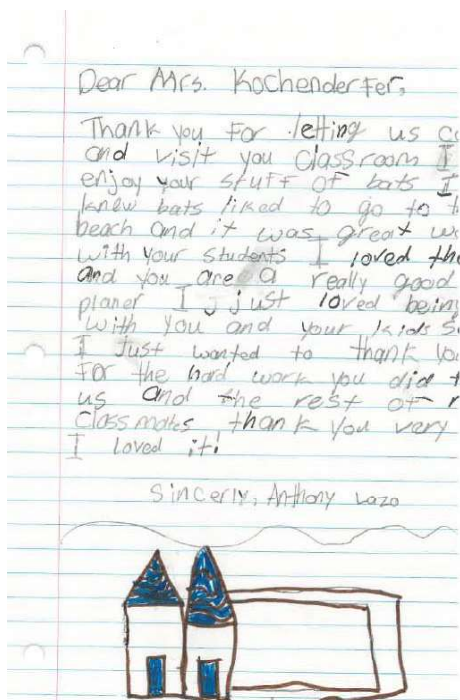 Dear Mrs. Kochenderfer,
Thank you for letting us
and visit you classroom I
enjoy your stuff of bats I
knew bats liked to go to
beach and it was great
with your students I loved
and you are a really good
planer I just loved being
with you and your kids
I Just wanted to thank
for the hard work you did
us and the rest of
classmates thank you very
I loved it!
Sincerly, Anthony Lazo